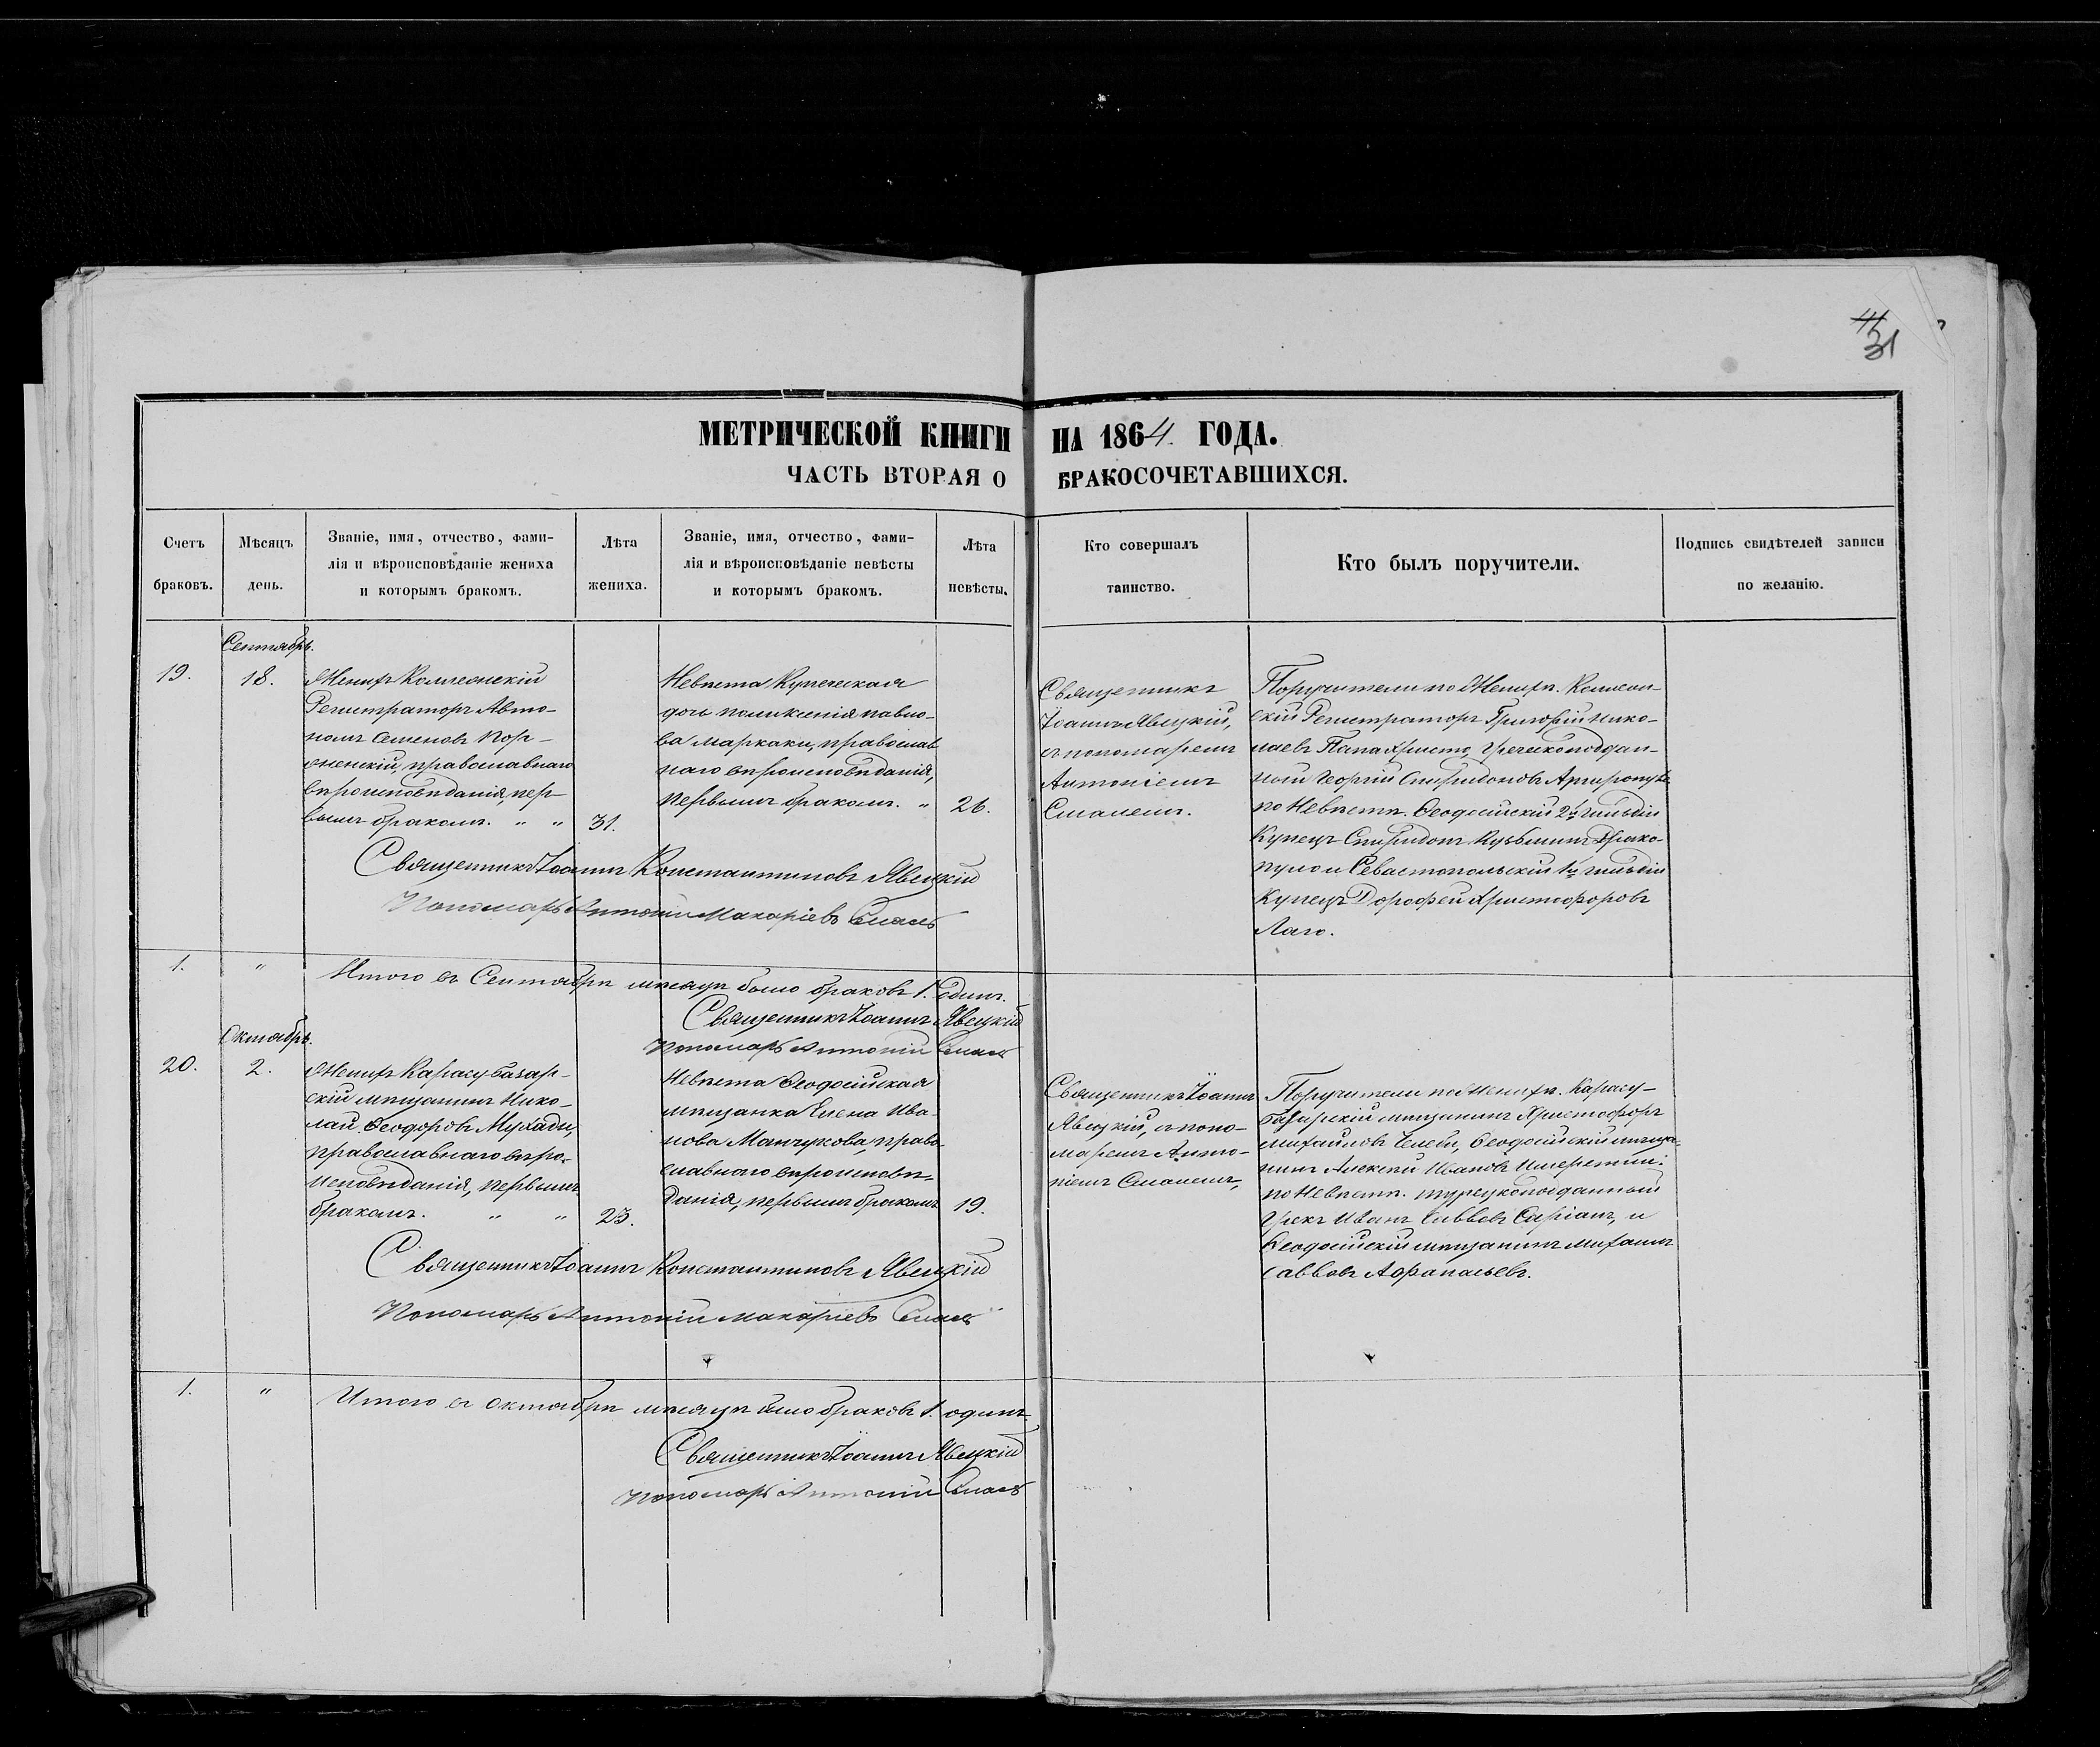 31
МЕТРИЧЕСКОЙ КНИГИ НА 1864. ГОДА.
ЧАСТЬ ВТОРАЯ О БРАКОСОЧЕТАВШИХСЯ.
Счетъ
браковъ.
Мѣсяцъ
день.
Званіе, имя, отчество, фами-
лія и вѣроисповѣданіе жениха
и которымъ бракомъ.
Лѣта
жениха.
Званіе, имя, отчество, фами-
лія и вѣроисповѣданіе невѣсты
и которымъ бракомъ.
Лѣта
невѣсты.
Кто совершалъ
таинство.
Кто былъ поручители.
Подпись свидѣтелей записи
по желанію.
Сентябрь.
19.
18.
Женихъ Коллежскій
Регистраторъ Авто-
номъ Семеновъ
православнаго
вѣроисповѣданія, пер-
вымъ бракомъ. " "
31.
Невѣста Купеческая
дочь Поликсенія Павло-
ва Маркаки, православ
наго вѣроисповѣданія,
первымъ бракомъ. "
26.
Священникъ
Іоаннъ Явецкій,
съ пономаремъ
Антоніемъ
Смалемъ.
Поручители по Женихѣ. Коллеж-
скій Регистраторъ Григорій Нико-
лаевъ Папахристо, Греческоподдан-
ный Георгій Спиридоновъ
по Невѣстѣ. Ѳеодосійскій 2й гильдіи
Купецъ Спиридонъ Кузьминъ Драко-
пуло и Севастопольскій 1й гильдіи
Купецъ Дороѳей Христофоровъ
Лаго.
Священникъ Іоаннъ Константиновъ Явецкій
Пономарь Антоній Макаріевъ Смаль
1. "
Итого въ Сентябрѣ мѣсяцѣ было браковъ 1. Одинъ.
Священникъ Іоаннъ Явецкій
Пономарь Антоній Смаль
Октябрь.
20.
2.
Женихъ Карасубазар-
скій мѣщанинъ Нико-
лай Ѳеодоровъ Мухади,
православнаго вѣро-
исповѣданія, первымъ
бракомъ. " "
23.
Невѣста Ѳеодосійская
мѣщанка Елена Ива-
нова Манчукова, право
славнаго вѣроисповѣ-
данія, первымъ бракомъ
19.
Священникъ Іоаннъ
Явецкій, съ поно-
маремъ Анто-
ніемъ Смалемъ,
Поручители по Женихѣ. Карасу-
базарскій мѣщанинъ Христофоръ
Михайловъ Челеби, Ѳеодосійскій мѣща-
нинъ Алексѣй Ивановъ
по Невѣстѣ. турецкоподданный
Грекъ Иванъ Саввовъ Сиріанъ, и
Ѳеодосійскій мѣщанинъ Михаилъ
Саввовъ Афанасьевъ.
Священникъ Іоаннъ Константиновъ Явецкій
Пономарь Антоній Макаріевъ Смаль
1. "
Итого въ Октябрѣ мѣсяцѣ было браковъ 1. одинъ
Священникъ Іоаннъ Явецкій
Пономарь Антоній Смаль